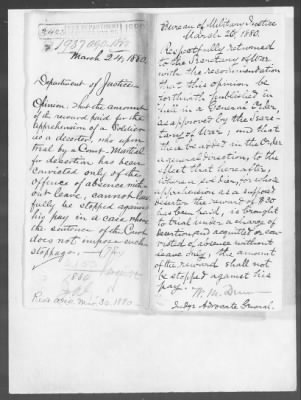 1937 AGO 1880
March 24, 1880.
Department of Justice.
Opinion: that the amount
of the reward paid for the
apprehension of a soldier
as a deserter, who upon
trial by a Court-Martial
for desertion has been
convicted only of the
offence of absence with-
out leave, cannot law-
fully be stopped against
his pay in a case where
the sentence of the Court
does not impose such
stoppage.
Rec'd A.G.O. Mar. 30. 1880
Bureau of Military Justice
March 26, 1880.
Respectfully returned
to the Secretary of War
with the recommendation
that this opinion be
forthwith published in
in a General Order
as approved by the Secre-
tary of War; and that
there be added in the Order
a general direction, to the
effect that hereafter,
when a soldier, for whose
apprehension as a suppos'd
deserter the reward of $30
has been paid, is brought
to trial under a charge of
desertion and acquitted or con-
victed of absence without
leave only, the amount
of the reward shall not
be stopped against his
pay.
W. M. Dunn
Judge Advocate General.